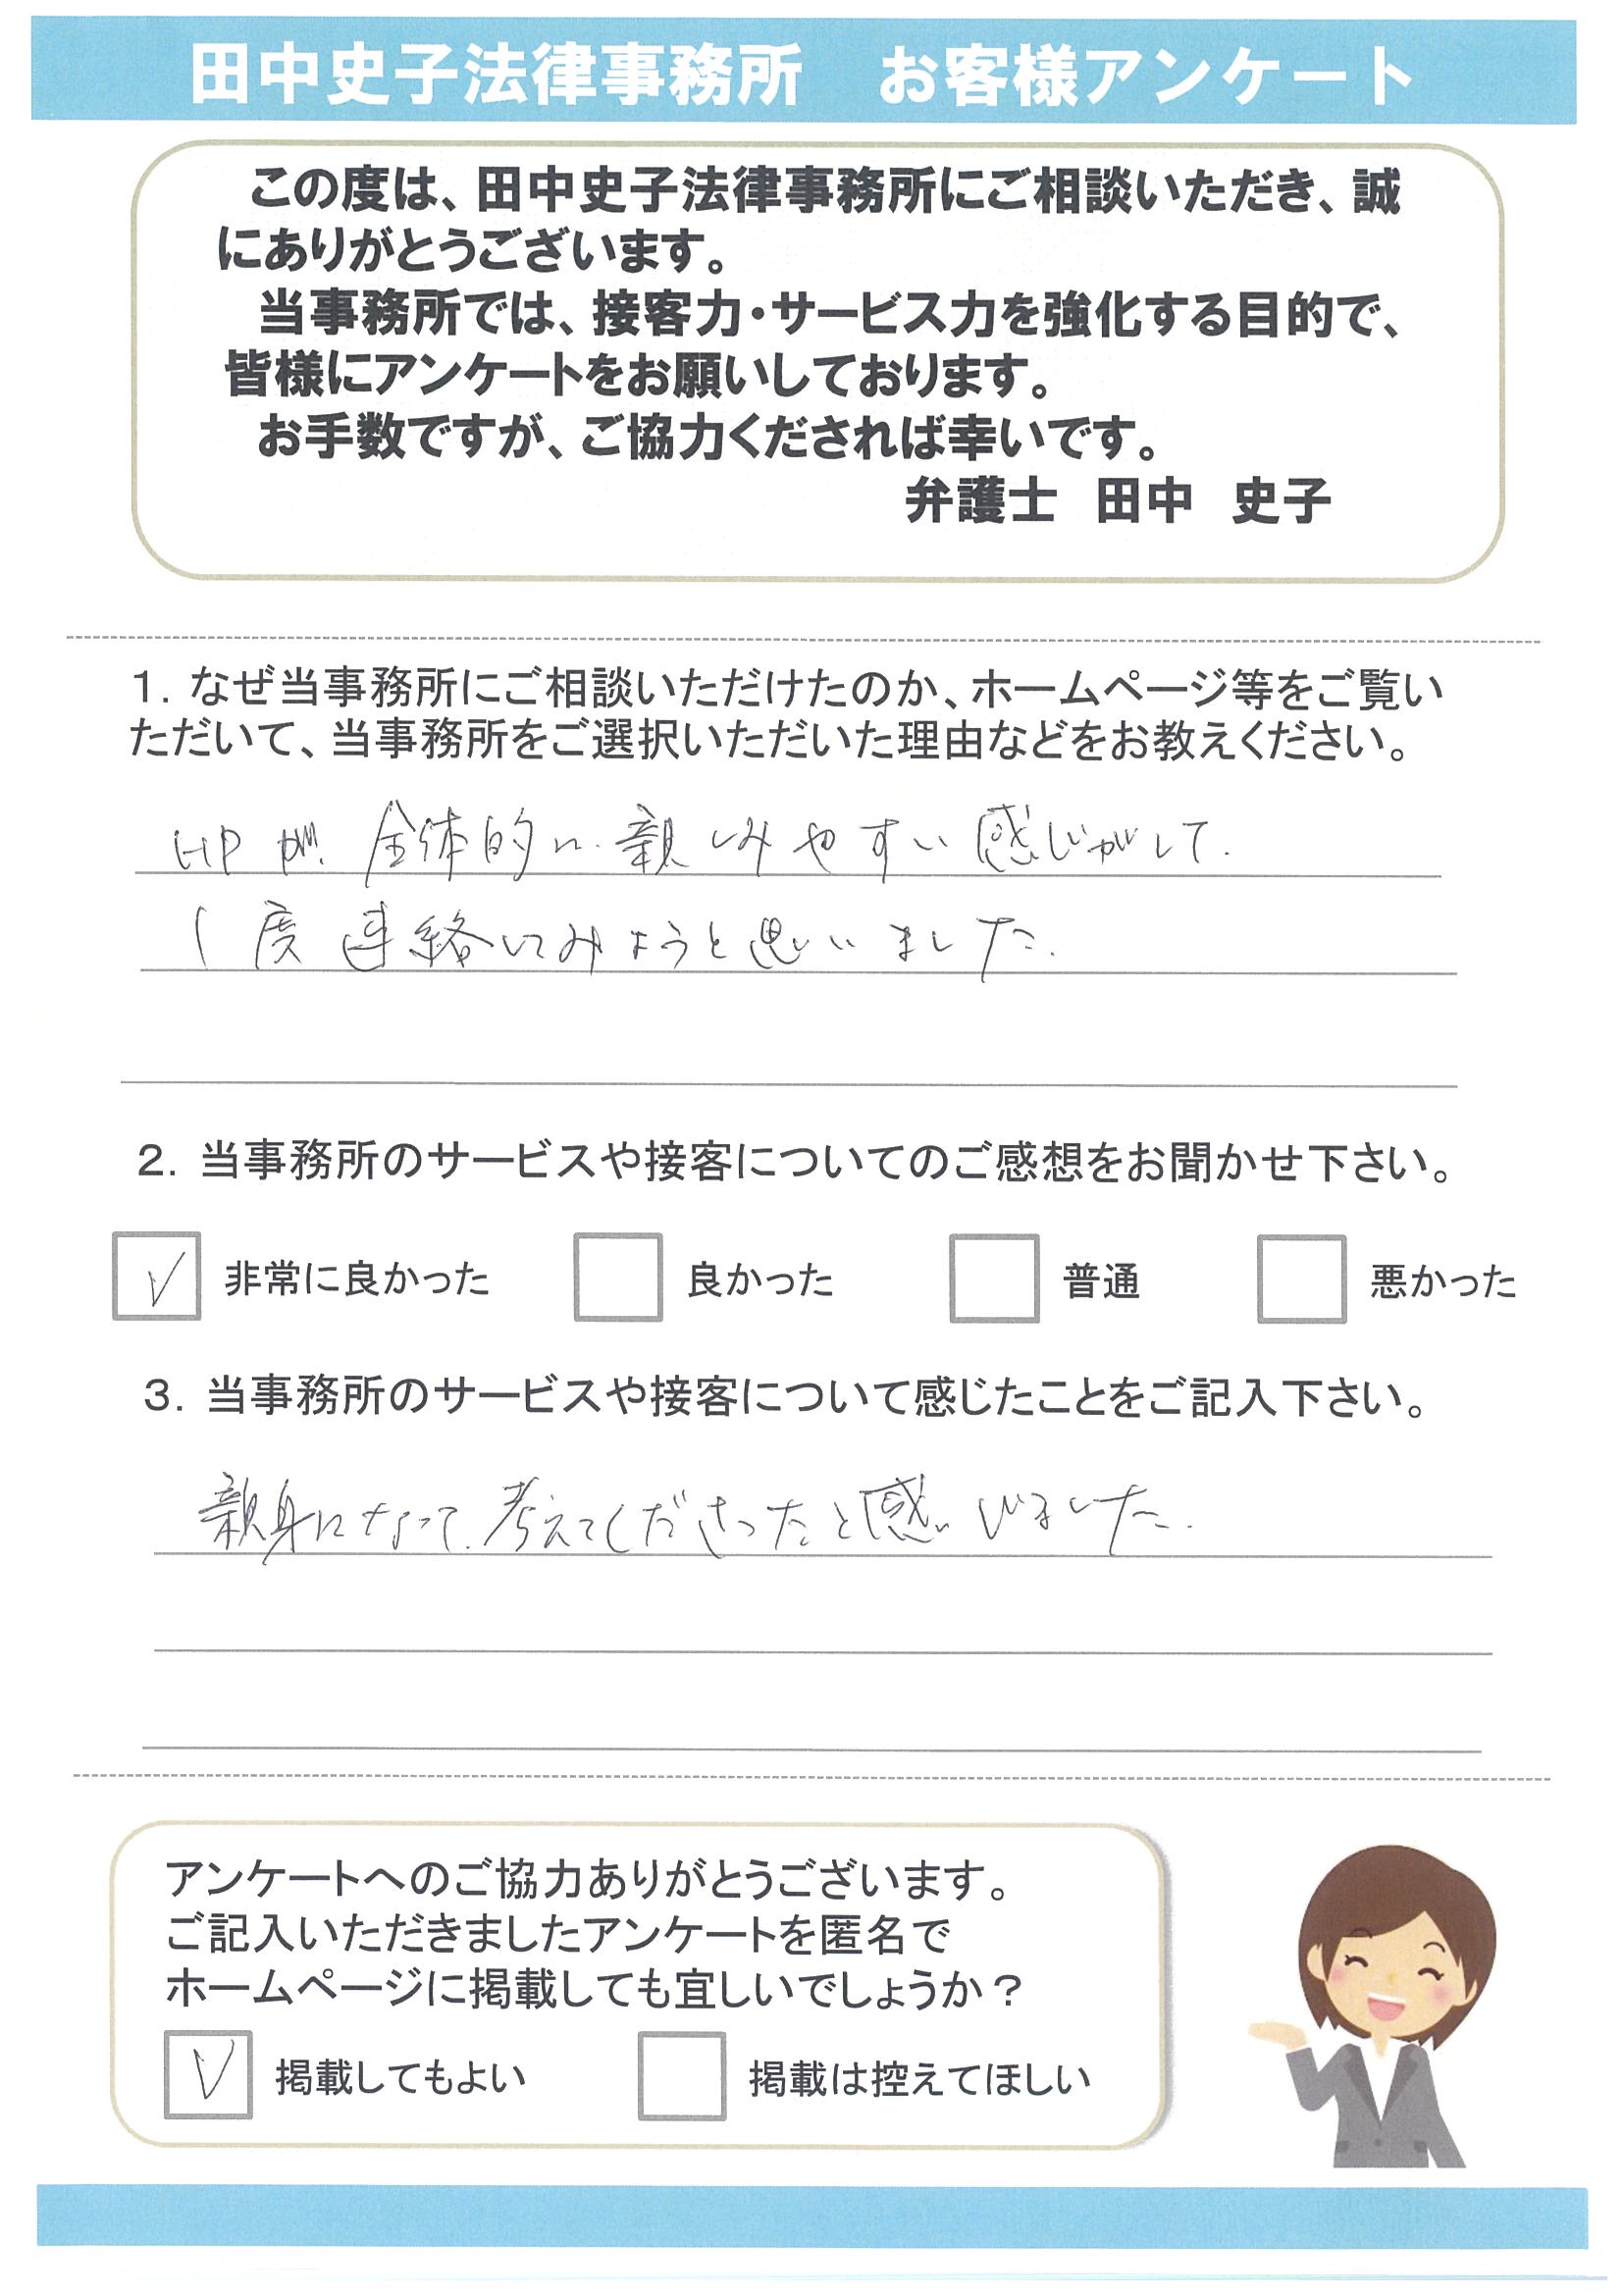 田中史子法律事務所　お客様アンケート
この度は、田中史子法律事務所にご相談いただき、誠
にありがとうございます。
当事務所では、接客力・サービス力を強化する目的で、
皆様にアンケートをお願いしております。
お手数ですが、ご協力くだされば幸いです。
弁護士　田中　史子
1. なぜ当事務所にご相談いただけたのか、ホームページ等をご覧い
ただいて、当事務所をご選択いただいた理由などをお教えください。
HPが、全体的に親しみやすい感じがして、
1度連絡してみようと思いました。
2. 当事務所のサービスや接客についてのご感想をお聞かせ下さい。
✓ 非常に良かった　良かった　普通　悪かった
3. 当事務所のサービスや接客について感じたことをご記入下さい。
親身になって、考えてくださったと感じました。
アンケートへのご協力ありがとうございます。
ご記入いただきましたアンケートを匿名で
ホームページに掲載しても宜しいでしょうか？
✓ 掲載してもよい　掲載は控えてほしい